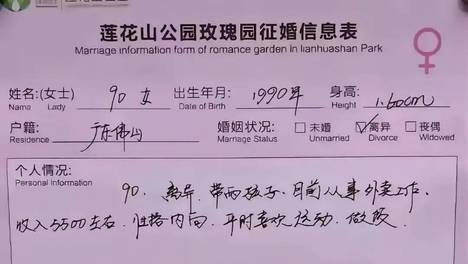 莲花山公园玫瑰园征婚信息表
Marriage information form of romance garden in lianhuashan Park
姓名:(女士) 90 女 出生年月: 1990年 身高: 1.60cm
Name Lady Date of Birth Height
户籍: 广东佛山 婚姻状况: 未婚 离异 丧偶
Residence Marriage Status Unmarried Divorce Widowed
个人情况:
Personal Information
90. 离异. 带两孩子. 目前从事外卖工作.
收入5500左右. 性格内向. 平时喜欢运动. 做饭.